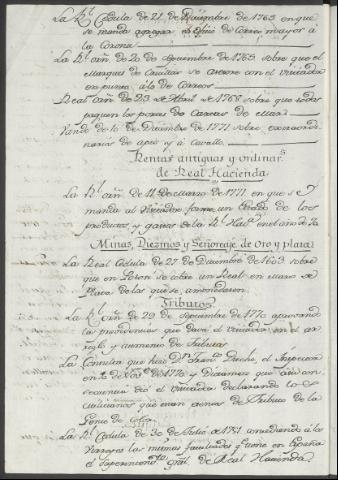 La Rl. Cedula de 21 de Diciembre de 1763 en que
se manda agregar el oficio de Correo mayor a
la Corona
La Rl. orñ. de 20 de Septiembre de 1765 sobre que el
Marques de Cruillas se acuerde con el Visitador
en punto a lo de Correos
Real orñ. de 23 de Abril de 1768 sobre que todos
paguen los portes de Cartas de Mar
Vando de 10 de Diciembre de 1771 sobre extraordi-
narios de apie y a cavallo
Rentas antiguas y ordinars.
de Real Hacienda
La Rl. orñ. de 11 de Marzo de 1777 en que se
manda al Visitador forme un Estado de los
productos, y gastos de la Rl. Hacda. en el año de
Minas, Diezmos y Señoreage de oro y plata
La Real Cedula de 27 de Diciembre de 1603 sobre
que en se cobre un Real en marco de
Plata de las que se
Tributos
La Rl. orñ. de 29 de Septiembre de 1770 aprovando
las providencias que dava el Visitador en el ar-
reglo y aumento de Tributos
La Consulta que hizo Dn. el Inspector
en de 1770 y Dictamen que en con-
secuencia dió el Visitador declarando los
Milicianos que eran esentos de Tributo de la
Gente de Color
La Rl. Cedula de 30 de Julio de 1781 concediendo á los
Virreyes las mismas facultades q. tiene en España
el Superintendte. gral. de Real Hacienda